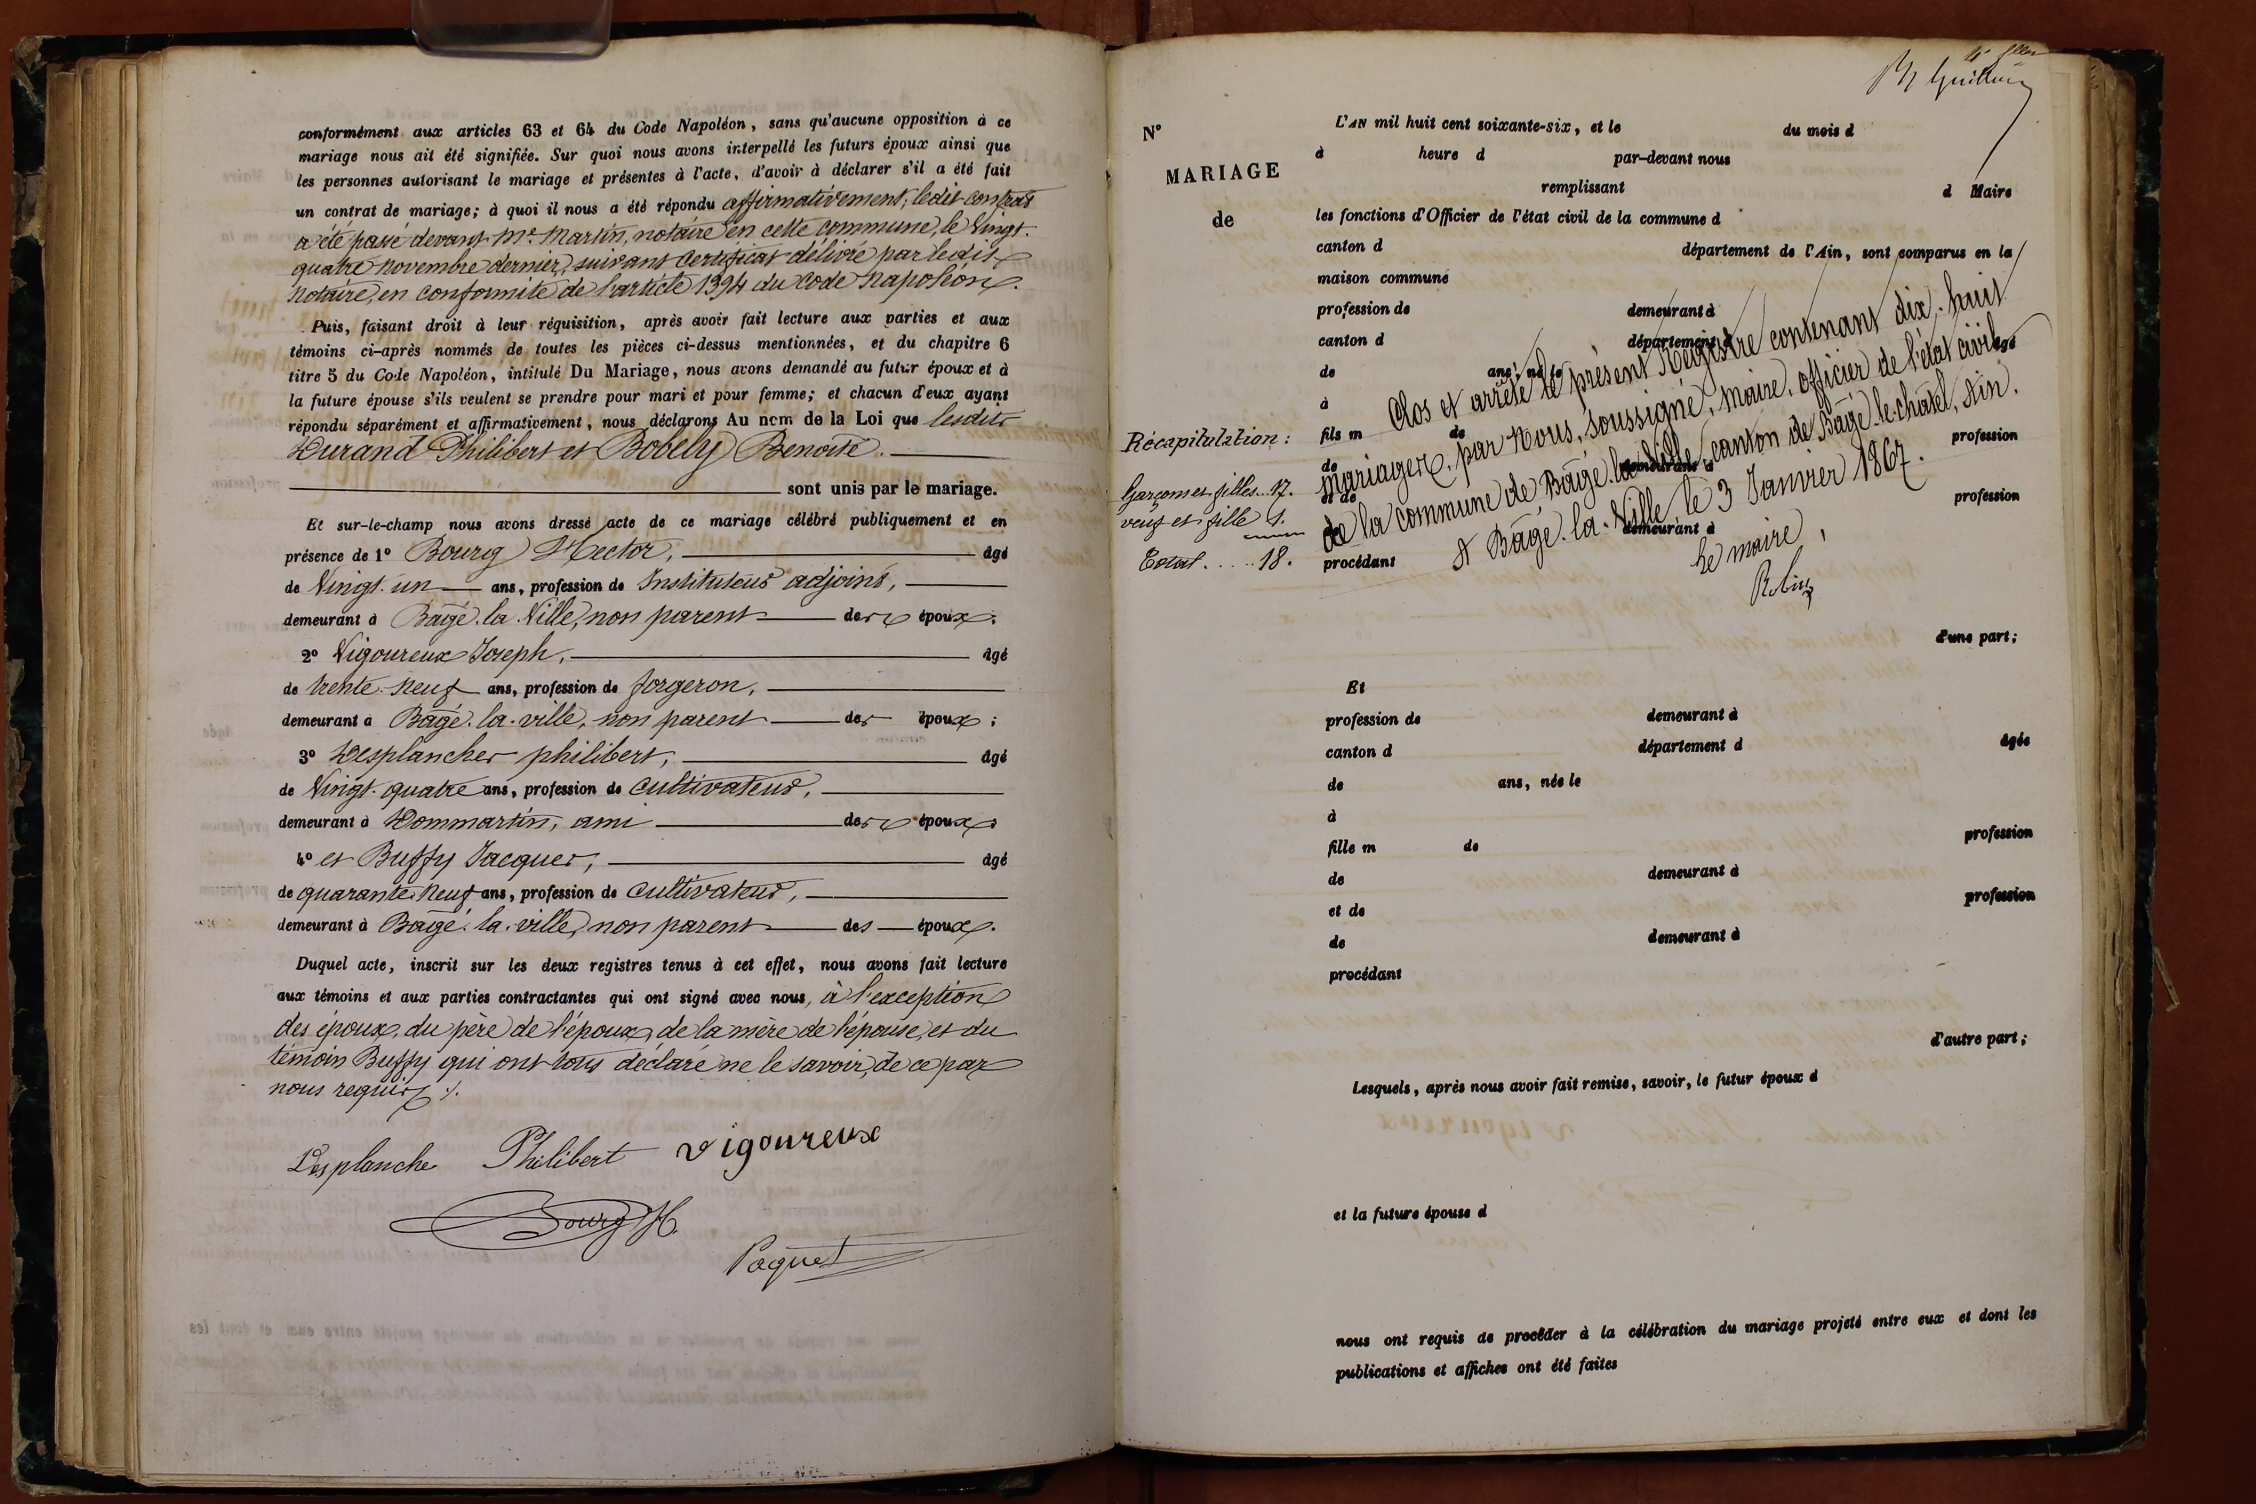 conformément aux articles 63 et 64 du Code Napoléon, sans qu'aucune opposition à ce
mariage nous ait été signifiée. Sur quoi nous avons interpellé les futurs époux ainsi que
les personnes autorisant le mariage et présentes à l'acte, d'avoir à déclarer s'il a été fait
un contrat de mariage; à quoi il nous a été répondu affirmativement; ledit contrat
a été passé devant Me. Martin, notaire en cette commune, le Vingt-
quatre novembre dernier, suivant certificat délivré par ledit
Notaire, en conformité de l'article 1394 du Code Napoléon.
Puis, faisant droit à leur réquisition, après avoir fait lecture aux parties et aux
témoins ci-après nommés de toutes les pièces ci-dessus mentionnées, et du chapitre 6
titre 5 du Code Napoléon, intitulé Du Mariage, nous avons demandé au futur époux et à
la future épouse s'ils veulent se prendre pour mari et pour femme; et chacun d'eux ayant
répondu séparément et affirmativement, nous déclarons Au nom de la Loi que lesdits
Durand Philibert et Bobelly Benoite.
sont unis par le mariage.
Et sur-le-champ nous avons dressé acte de ce mariage célébré publiquement et en
présence de 1° Bourg Hector, âgé
de Vingt-un ans, profession de Instituteur adjoint,
demeurant à Bâgé-la-Ville, non parent des époux;
2° Vigoureux Joseph, âgé
de trente-neuf ans, profession de forgeron,
demeurant à Bâgé-la-ville, non parent des époux;
3° Desplanches philibert, âgé
de Vingt-quatre ans, profession de cultivateur,
demeurant à Dommartin, ami des époux;
4° et Buffy Jacques, âgé
de quarante-neuf ans, profession de cultivateur,
demeurant à Bâgé-la-ville, non parent des époux.
Duquel acte, inscrit sur les deux registres tenus à cet effet, nous avons fait lecture
aux témoins et aux parties contractantes qui ont signé avec nous, à l'exception
des époux, du père de l'époux, de la mère de l'épouse, et du
témoin Buffy qui ont tous déclaré ne le savoir, de ce par
nous requis ./.
Desplanche Philibert Vigoureux
Bourg H.
Paquet
N°
MARIAGE
de
Récapitulation:
Garçons et filles..17.
veuf et fille 1.
Total.....18.
L'AN mil huit cent soixante-six, et le du mois d
à heure d par-devant nous
remplissant d Maire
les fonctions d'Officier de l'état civil de la commune d
canton d département de l'Ain, sont comparus en la
maison commune
profession de demeurant à
canton d département d âgé
de ans, né le
à
fils m de profession
de demeurant à
et de profession
de demeurant à
procédant
Clos et arrêté le présent Registre contenant dix-huit
mariages, par Nous, soussigné, Maire, officier de l'état civil
de la commune de Bâgé-la-Ville, canton de Bâgé-le-châtel, Ain.
A Bâgé-la-Ville, le 3 Janvier 1867.
Le maire,
d'une part;
Et
profession de demeurant à
canton d département d âgée
de ans, née le
à
fille m de profession
de demeurant à
et de profession
de demeurant à
procédant
d'autre part;
Lesquels, après nous avoir fait remise, savoir, le futur époux d
et la future épouse d
nous ont requis de procéder à la célébration du mariage projeté entre eux et dont les
publications et affiches ont été faites